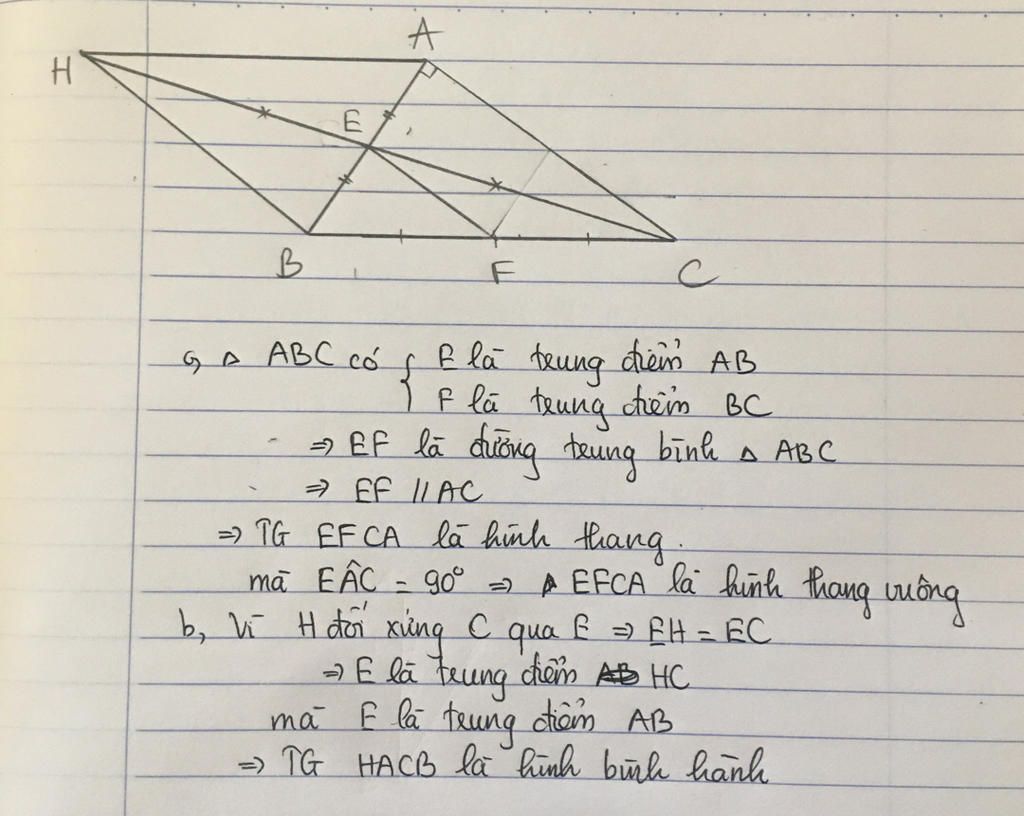 A
H
E
B
F
C
a, △ ABC có { E là trung điểm AB
F là trung điểm BC
⇒ EF là đường trung bình △ ABC
⇒ EF // AC
⇒ TG EFCA là hình thang.
mà EÂC = 90° ⇒ EFCA là hình thang vuông
b, Vì H đối xứng C qua E ⇒ EH = EC
⇒ E là trung điểm HC
mà E là trung điểm AB
⇒ TG HACB là hình bình hành